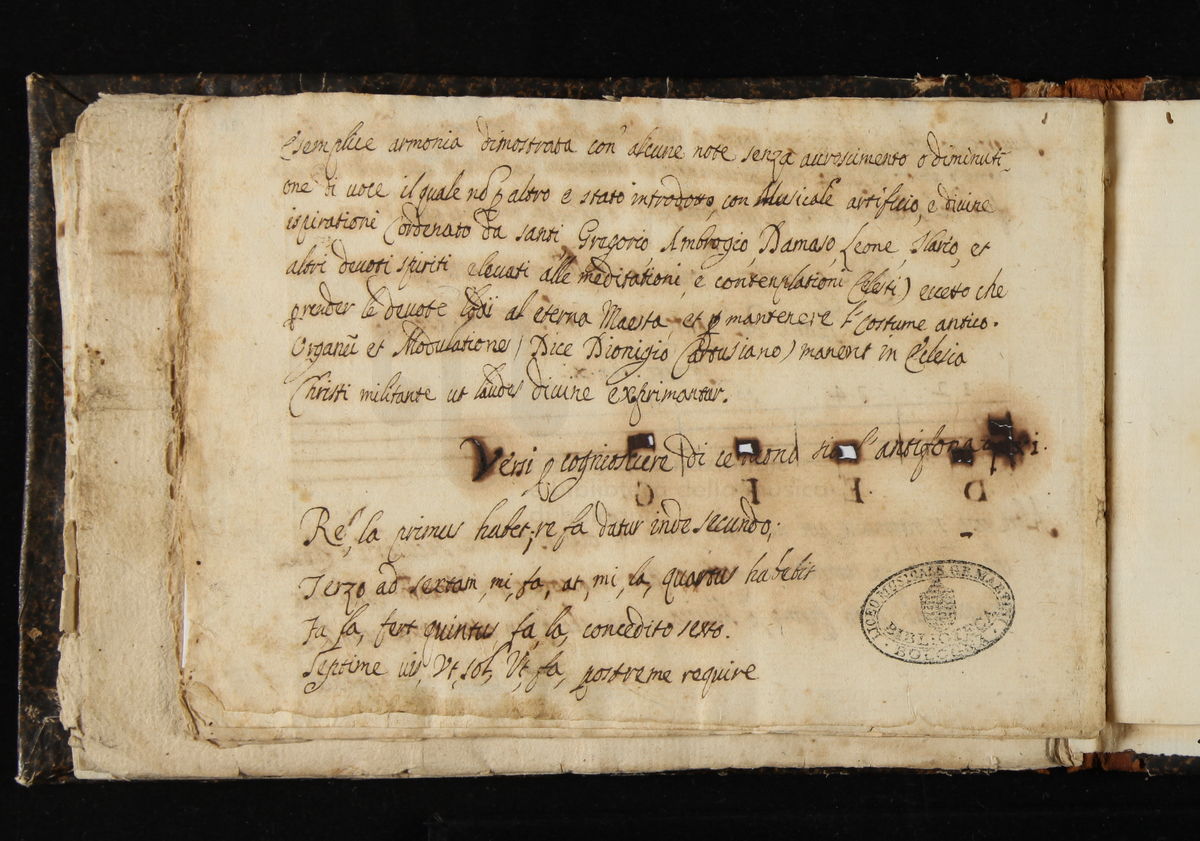 e semplice armonia dimostrata con alcune note senza accrescimento o diminuti-
one di voce il quale nō p altro e stato introdotto, con Musicale artificio, e divine
ispirationi (ordenato da santi Gregorio, Ambrogio, Damaso, Leone, Ilario, et
altri devoti spiriti elevati alle meditationi, e contenplationi Celesti) eccetto che
prender le devote lodi al eterna Maesta et p mantenere l' costume antico.
Organū et Modulationes (Dice Dionigio Cartusiano) manent in Eclesia
Christi militante ut laudes divine exprimantur.
Versi p cognioscere di che tuono sia l'antifona
G F F D
Re, la primus habet; re fa datur inde secundo;
Terzo ad sextam, mi, fa, at, mi, la, quartus habebit
Fa fa, fert quintus fa, la, concedito sexto.
Septime vis, Vt, sol, Vt, fa, postreme require
LICEO MUSICALE G.B. MARTINI
BIBLIOTECA
BOLOGNA